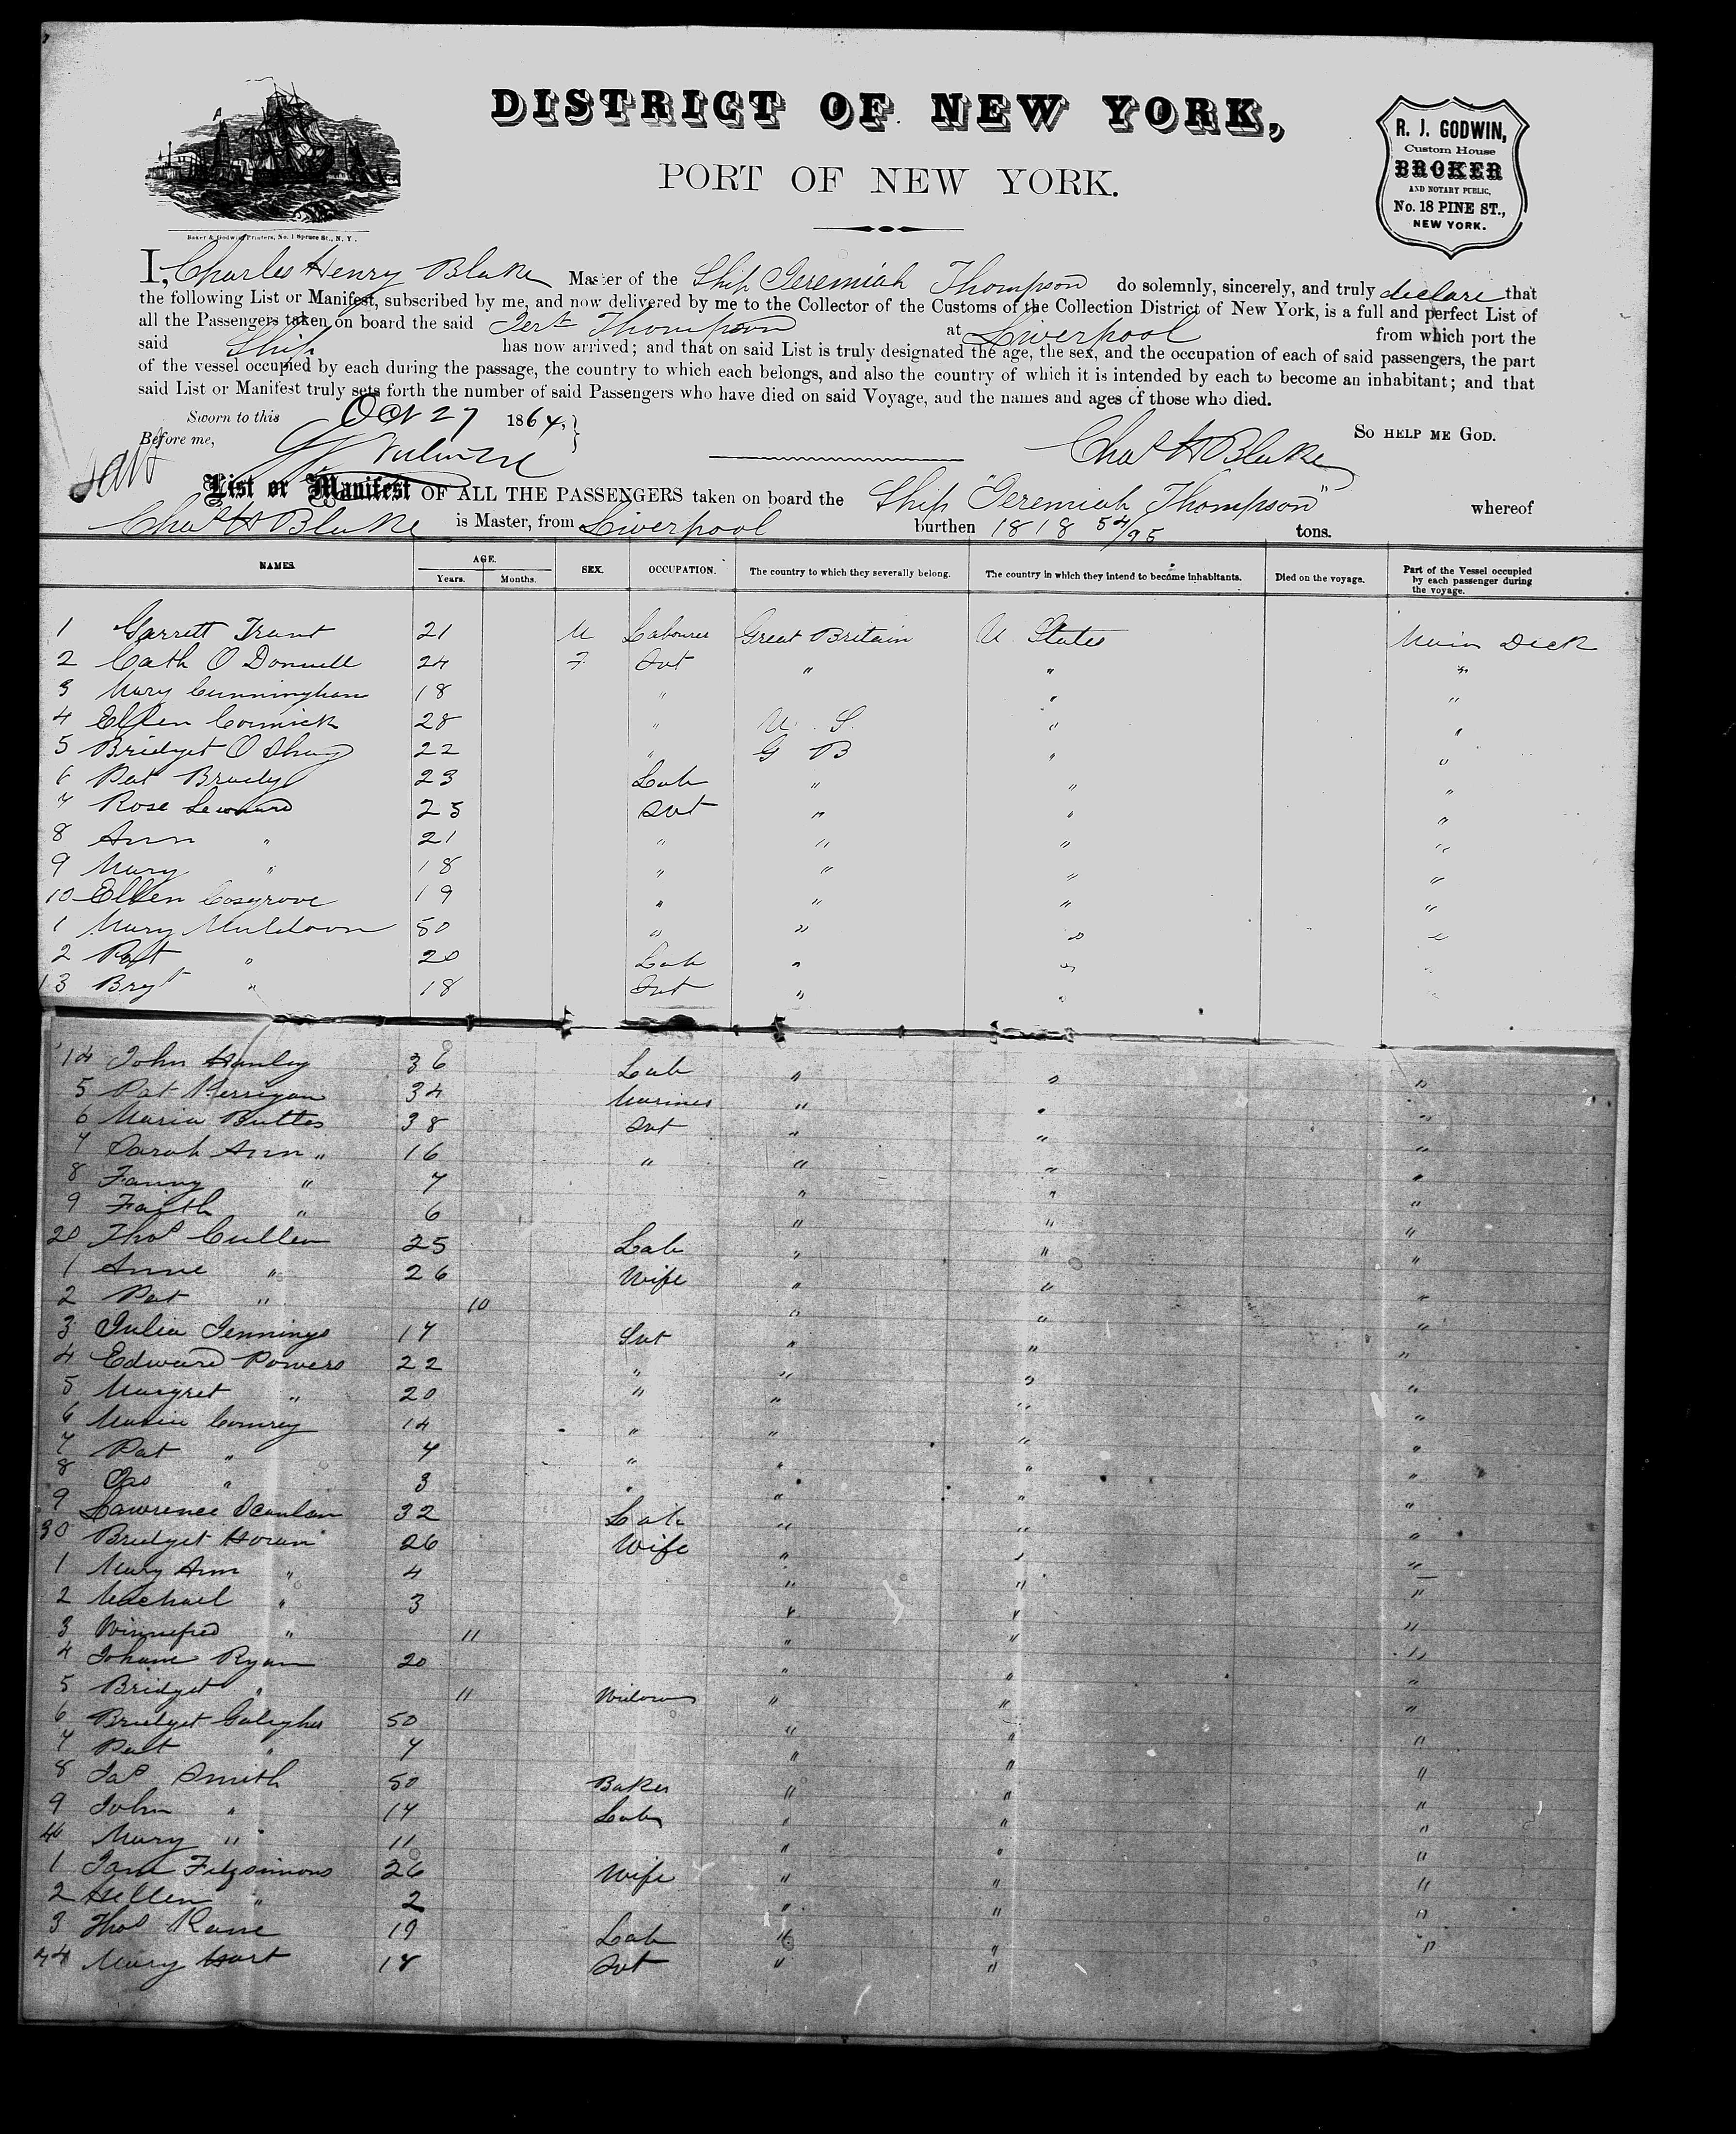 DISTRICT OF NEW YORK,
PORT OF NEW YORK.
R. J. GODWIN,
Custom House
BROKER
AND NOTARY PUBLIC,
No. 18 PINE ST.,
NEW YORK.
Baker & Godwin, Printers, No. 1 Spruce St., N. Y.
I, Charles Henry Blake Master of the Ship Jeremiah Thompson do solemnly, sincerely, and truly declare that
the following List or Manifest, subscribed by me, and now delivered by me to the Collector of the Customs of the Collection District of New York, is a full and perfect List of
all the Passengers taken on board the said Jerh Thompson at Liverpool from which port the
said Ship has now arrived; and that on said List is truly designated the age, the sex, and the occupation of each of said passengers, the part
of the vessel occupied by each during the passage, the country to which each belongs, and also the country of which it is intended by each to become an inhabitant; and that
said List or Manifest truly sets forth the number of said Passengers who have died on said Voyage, and the names and ages of those who died.
Sworn to this Oct 27 1864. SO HELP ME GOD.
Before me, Chas H Blake
List or Manifest OF ALL THE PASSENGERS taken on board the Ship "Jeremiah Thompson" whereof
Chas H Blake is Master, from Liverpool burthen 1818 54/95 tons.
NAMES. AGE. SEX. OCCUPATION. The country to which they severally belong. The country in which they intend to become inhabitants. Died on the voyage. Part of the Vessel occupied by each passenger during the voyage.
Years. Months.
1 Garrett Trant 21 M Labourer Great Britain U. States Main Deck
2 Cath O Donnell 24 F Svt " " "
3 Mary Cunningham 18 " " "
4 Ellen Cormick 28 " U. S. " "
5 Bridget O 22 " G B " "
6 Pat Brady 23 Lab " " "
7 Rose Leonard 25 Svt " " "
8 Ann " 21 " " " "
9 Mary " 18 " " " "
10 Ellen Cosgrove 19 " " " "
1 Mary Muldoon 50 " " " "
2 Pat " 20 Lab " " "
13 Brgt " 18 Svt " " "
14 John Hanley 36 Lab " " "
5 Pat Kerrigan 34 Mariner " " "
6 Maria Butler 38 Svt " " "
7 Sarah Ann " 16 " " " "
8 Fanny " 7 " " "
9 Faith " 6 " " "
20 Thos Cullen 25 Lab " " "
1 Anne " 26 Wife " " "
2 Pat " 10 " " "
3 Julia Jennings 17 Svt " " "
4 Edward Powers 22 " " " "
5 Margret " 20 " " " "
6 Maria 14 " " " "
7 Pat " 7 " " " "
8 Jas " 3 " " " "
9 Lawrence Scanlan 32 Lab " " "
30 Bridget Horan 26 Wife " " "
1 Mary Ann " 4 " " "
2 Michael " 3 " " "
3 Winnefred " 11 " " "
4 Ryan 20 " " "
5 Bridget " 11 Widow " " "
6 Bridget Galegher 50 " " "
7 Pat " 7 " " "
8 Jas Smith 50 Baker " " "
9 John " 17 Lab " " "
40 Mary " 11 " " "
1 Jane Fitzsimons 26 Wife " " "
2 Hellen " 2 " " "
3 Thos Kane 19 Lab " " "
44 Mary Hart 18 Svt " "